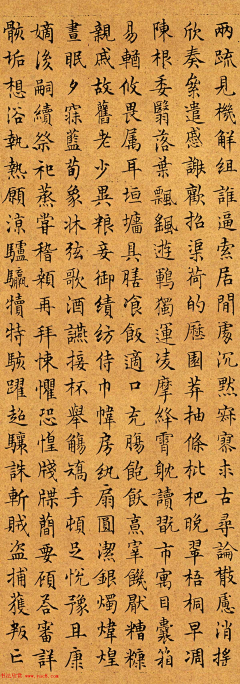 兩疏見機解組誰逼索居閒處沉默寂寥求古尋論散慮消搖
欣奏累遣慼謝歡招渠荷的歷園莽抽條枇杷晚翠梧桐早凋
陳根委翳落葉飄颻遊鵾獨運凌摩絳霄耽讀翫市寓目囊箱
易輶攸畏属耳垣墻具膳飡飯適口充腸飽飫烹宰饑厭糟糠
親戚故舊老少異粮妾御績紡侍巾帷房紈扇圓潔銀燭煒煌
晝眠夕寐藍荀象牀弦歌酒讌接杯舉觴矯手頓足悅豫且康
嫡後嗣續祭祀蒸嘗稽顙再拜悚懼恐惶牋牒簡要顧答審詳
骸垢想浴執熱願涼驢騾犢特駭躍超驤誅斬賊盜捕獲叛亡